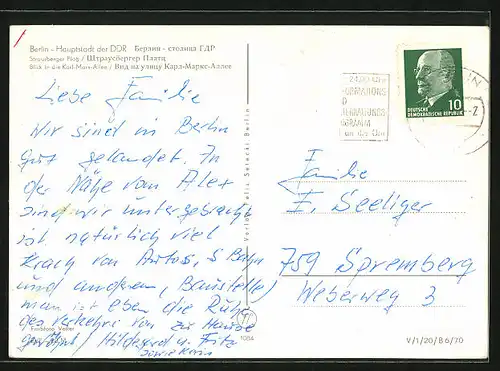 Berlin - Hauptstadt der DDR Берлин - столица ГДР
Strausberger Platz / Штраусбергер Платц
Blick in die Karl-Marx-Allee / Вид на улицу Карл-Маркс-Аллее
Liebe Familie
Wir sind in Berlin
gut gelandet. In
der Nähe vom Alex
sind wir untergebracht
ist natürlich viel
Krach von Autos, S Bahn
und anderem, (Baustelle)
man ist eben die Ruhe
des Verkehrs von zu Hause
gewöhnt / Hildegard u. Fritz
sowie Karin
Farbfoto Vetter
1084
Verlag Felix Setecki Berlin
DEUTSCHE
DEMOKRATISCHE REPUBLIK
10
Familie
E. Seeliger
759 Spremberg
Weberweg 3
V/1/20/B 6/70